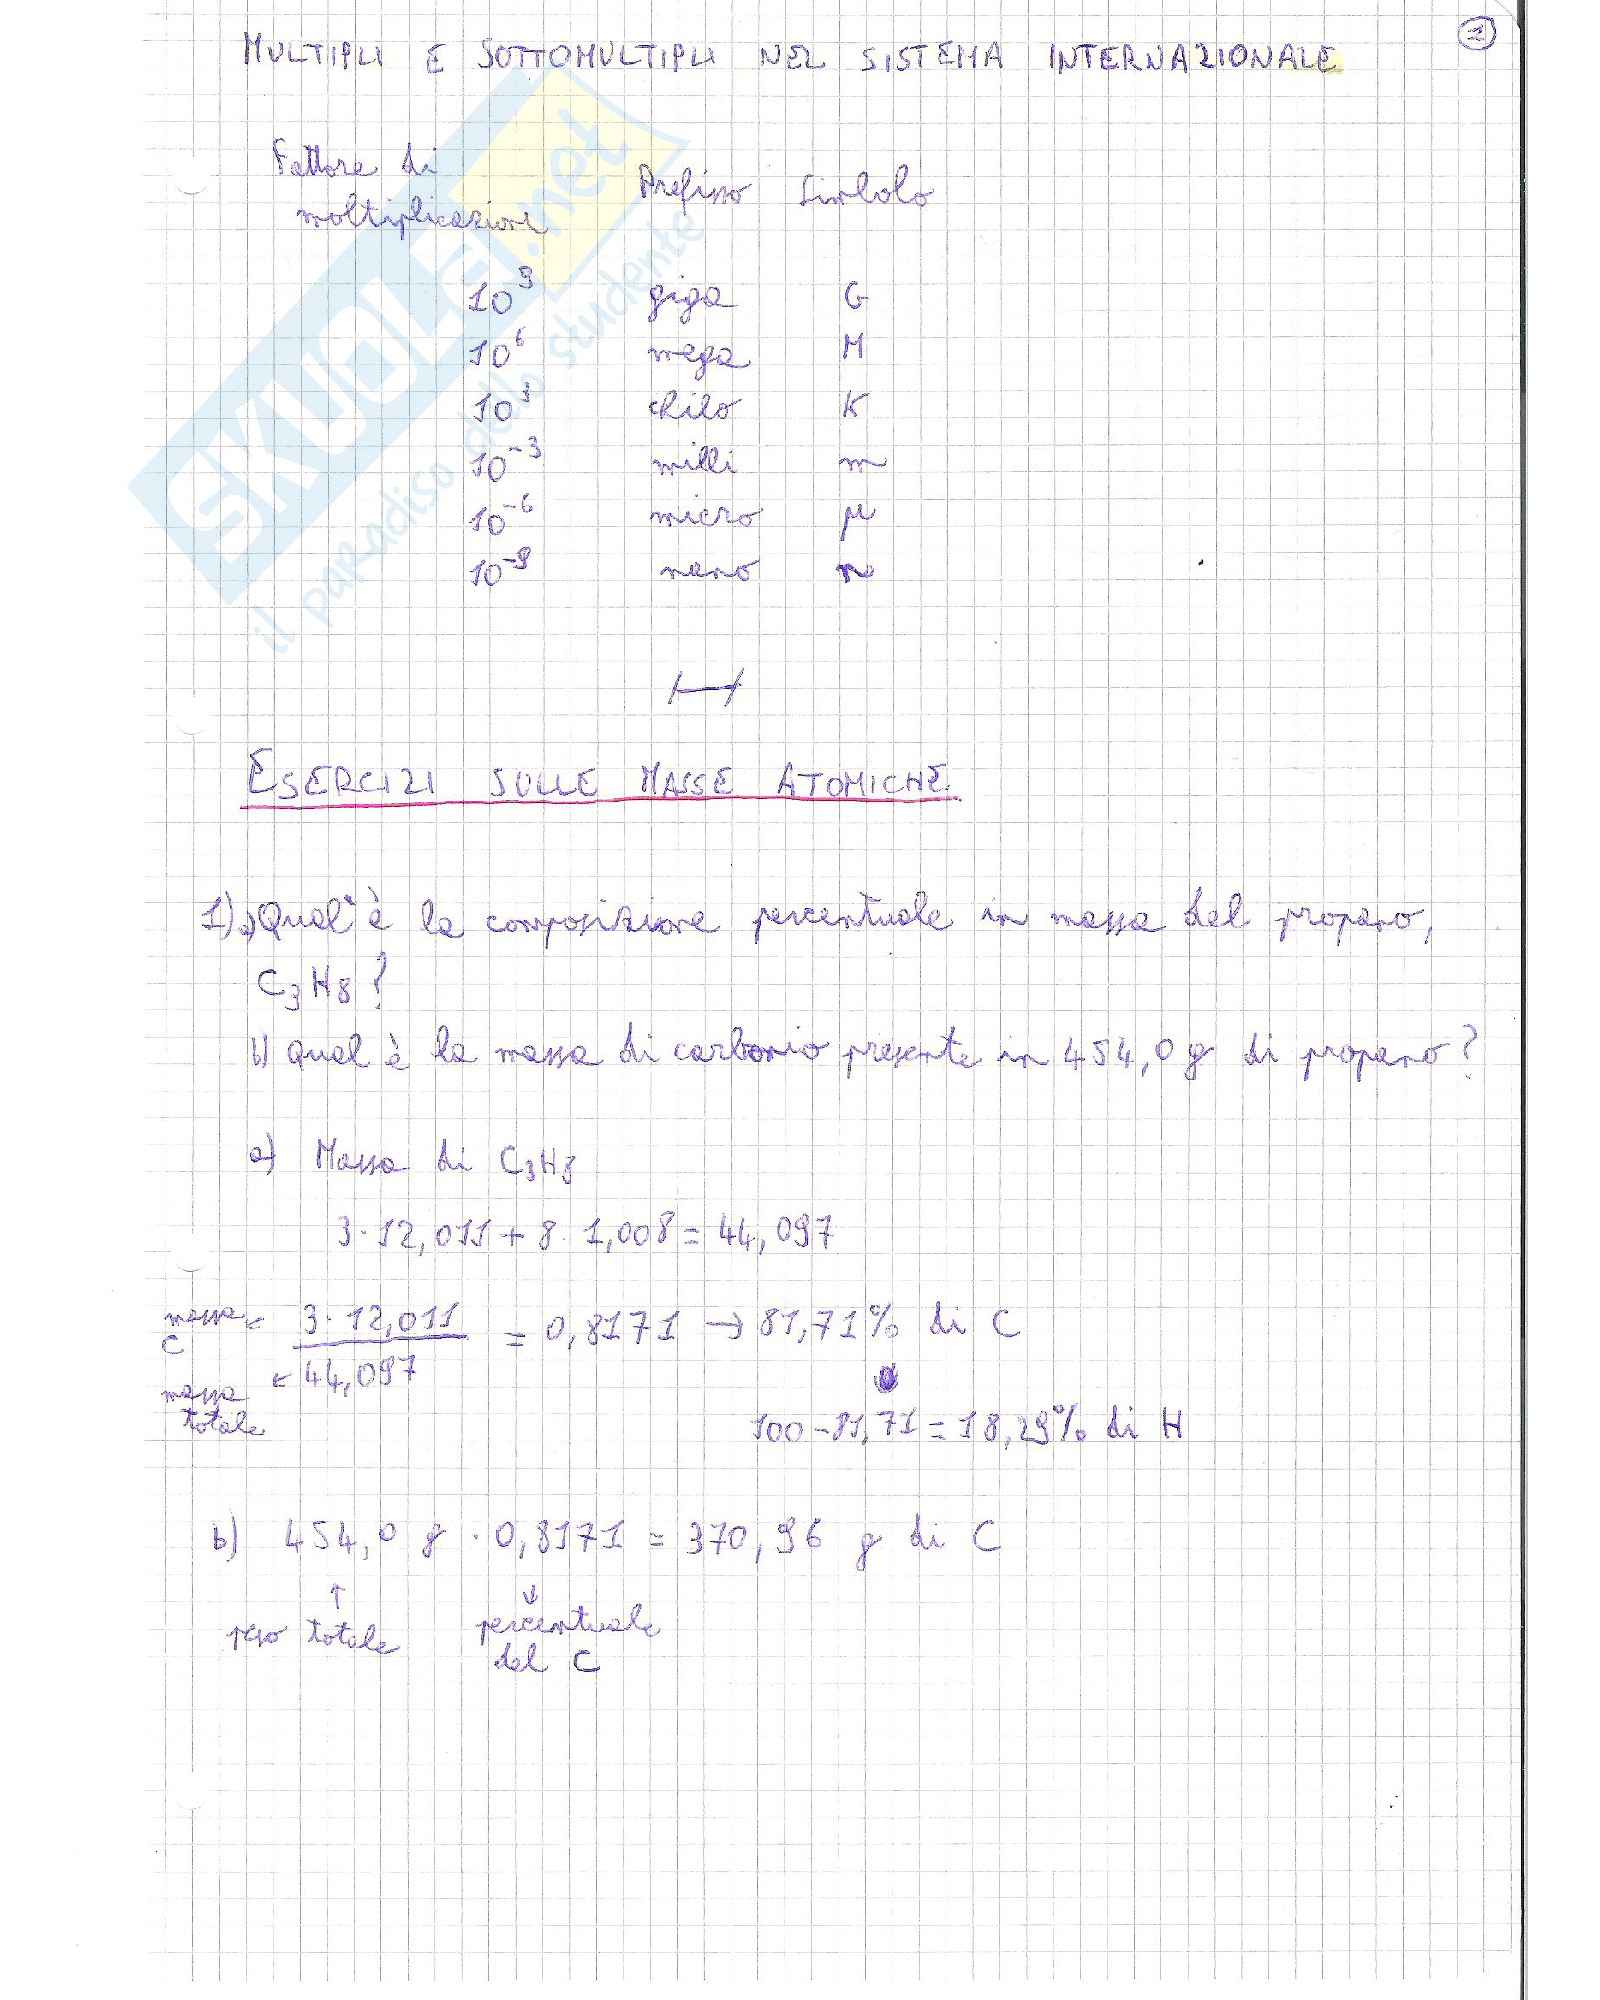 1
MULTIPLI E SOTTOMULTIPLI NEL SISTEMA INTERNAZIONALE
Fattore di
moltiplicazione
Prefisso Simbolo
10⁹ giga G
10⁶ mega M
10³ chilo K
10⁻³ milli m
10⁻⁶ micro μ
10⁻⁹ nano n
SKUOLA.net
il paradiso dello studente
ESERCIZI SULLE MASSE ATOMICHE.
1) a) Qual'è la composizione percentuale in massa del propano,
C₃H₈?
b) qual è la massa di carbonio presente in 454,0 g di propano?
a) Massa di C₃H₈
3·12,011 + 8·1,008 = 44,097
massa C ← 3·12,011 / 44,097 = 0,8171 → 81,71% di C
massa totale ←
100-81,71 = 18,29% di H
b) 454,0 g · 0,8171 = 370,96 g di C
↑ ↓
peso totale percentuale
del C